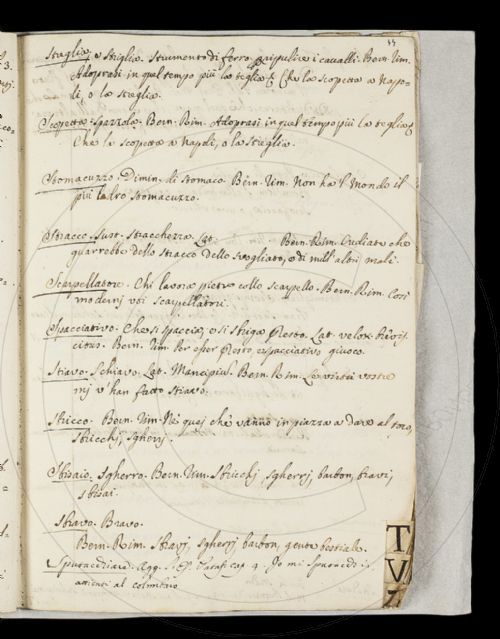 44
Stegliæ o Strigliæ. Strumento di ferro p ripulire i cavalli. Bern. Rim.
Adoprasi in quel tempo più la tegliæ Che la scopetta a Napo-
li, o la steglia.
Scopetta. Spazzola. Bern. Rim. Adoprasi in quel tempo più la teglia
Che la scopetta a Napoli, o la steglia.
Stomacuzzo. Dimin. di stomaco. Bern. Rim. Non ha 'l mondo il
più ladro stomacuzzo.
Stracco. Sust. Stracchezza. Lat. Bern. Rim. Crediate che
guarrebbe dello stracco dello svogliato, e di mill' altri mali.
Scarpellatore. Chi lavora pietre collo scarpello. Bern. Rim. Così
moderni voi scarpellatori.
Spacciativo. Che si spaccia, o si sbriga presto. Lat. velox.
Bern. Rim. Per esser presto, e spacciativo giuoco.
Stiavo. Schiavo. Lat. Mancipiu. Bern. Rim. Le virtù vostre
mi v' han fatto stiavo.
Sbricco. Bern. Rim. Nè quei che vanno in piazza a dare al toro,
Sbricchi, sgherri.
Sbisaio. Sgherro. Bern. Rim. Sbricchi, sgherri, barbon, bravi,
sbisai.
Sbravo. Bravo.
Bern. Rim. Sbravi, sgherri, barbon, gente bestiale.
cap. 9. Io mi
al colombaio
T
V
Z